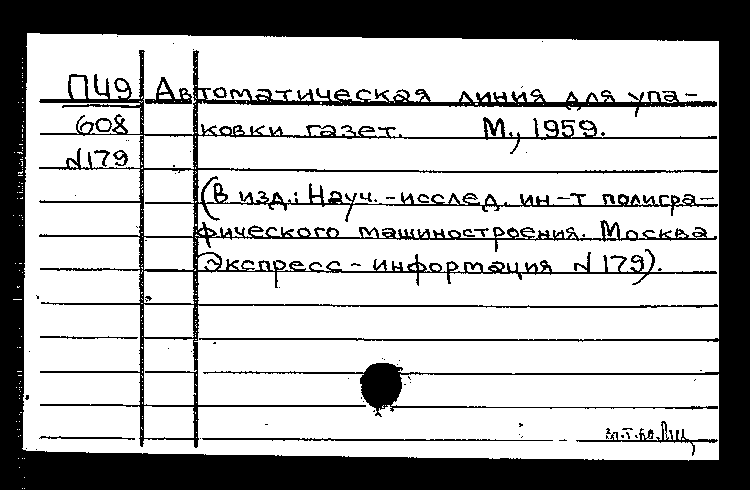 П49 Автоматическая линия для упа-
608 ковки газет. М., 1959.
N179
(В изд.: Науч.-исслед. ин-т полигра-
фического машиностроения. Москва.
Экспресс-информация N179).